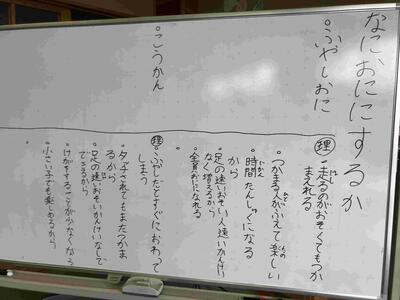 なにおににするか
・ふやしおに
・こうかん
理
・走るのがおそくてもつか
まえれる
・つかまる人がふえて楽しい
・時間たんしゅくになる
から
・足の速いおそい人速いかんけい
なく増えるから
・全員おにになれる
理
・ふやしだとすぐにおわって
しまう
・タッチされてもまたつかま
るから
・足の速いおそいかんけいなしで
できるから
・けがをすることが少なくなる
・小さい子でも楽しめるから